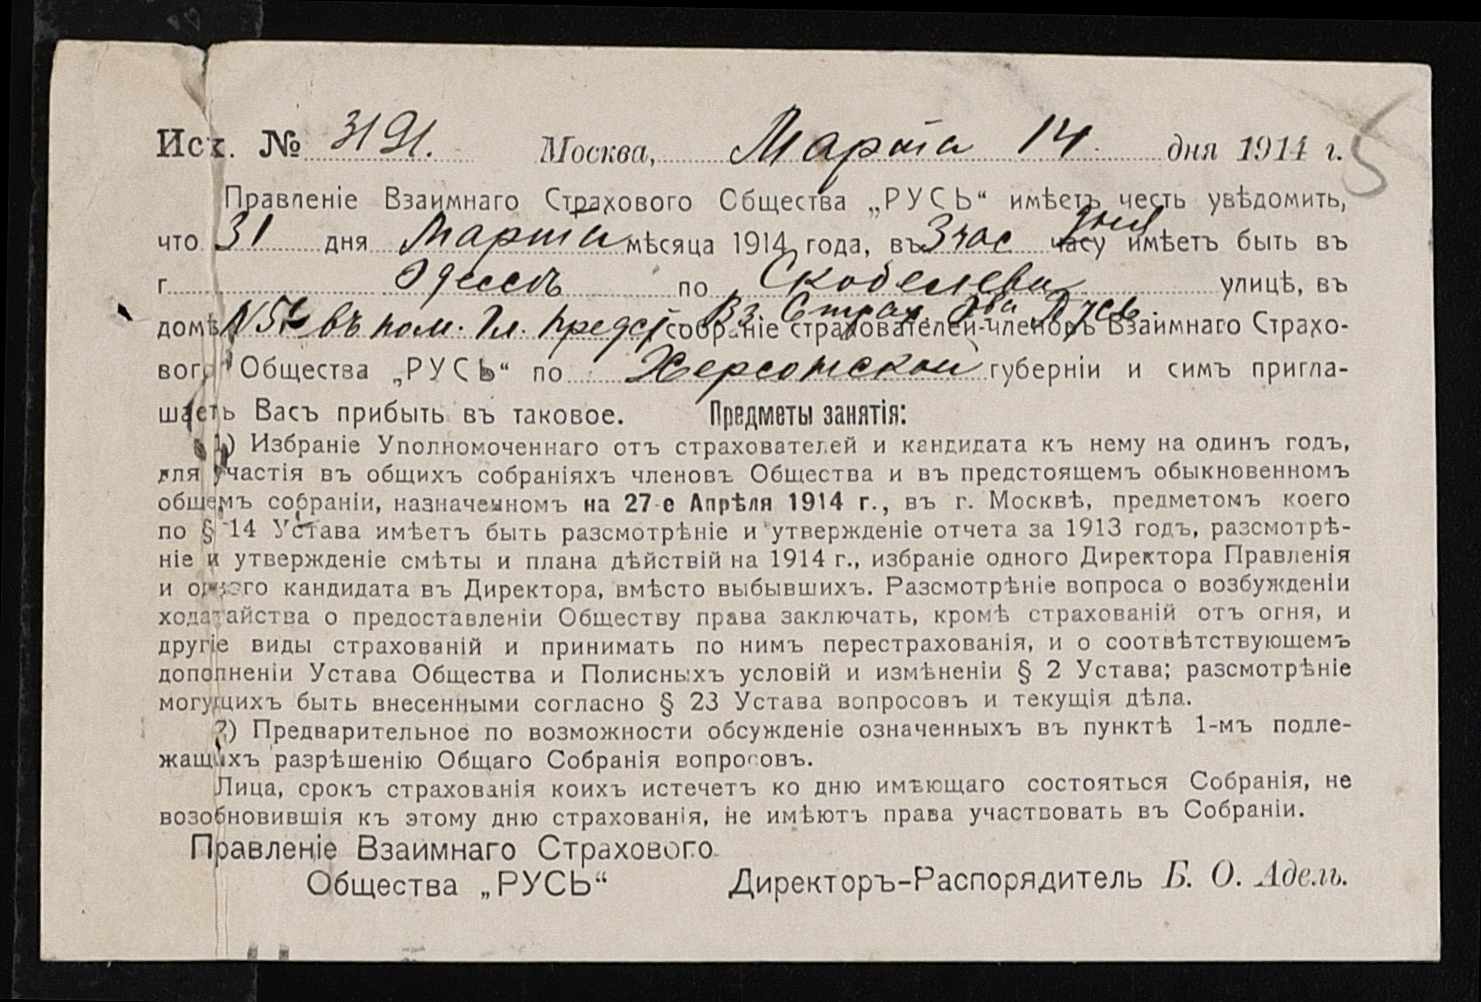 Исх. № 3191. Москва, Марта 14 дня 1914 г. 5
Правленіе Взаимнаго Страхового Общества „РУСЬ“ имѣетъ честь увѣдомить,
что 31 дня Марта мѣсяца 1914 года, въ 3 час дня часу имѣетъ быть въ
г. Одессѣ по Скобелева улицѣ, въ
домѣ въ пом. Гл. Предс. Вз. Страх. О-ва Русь собраніе страхователей-членовъ Взаимнаго Страхо-
вого Общества „РУСЬ“ по Херсонской губерніи и симъ пригла-
шаетъ Васъ прибыть въ таковое. Предметы занятія:
1) Избраніе Уполномоченнаго отъ страхователей и кандидата къ нему на одинъ годъ,
для участія въ общихъ собраніяхъ членовъ Общества и въ предстоящемъ обыкновенномъ
общемъ собраніи, назначенномъ на 27-е Апрѣля 1914 г., въ г. Москвѣ, предметомъ коего
по § 14 Устава имѣетъ быть разсмотрѣніе и утвержденіе отчета за 1913 годъ, разсмотрѣ-
ніе и утвержденіе смѣты и плана дѣйствій на 1914 г., избраніе одного Директора Правленія
и одного кандидата въ Директора, вмѣсто выбывшихъ. Разсмотрѣніе вопроса о возбужденіи
ходатайства о предоставленіи Обществу права заключать, кромѣ страхованій отъ огня, и
другіе виды страхованій и принимать по нимъ перестрахованія, и о соотвѣтствующемъ
дополненіи Устава Общества и Полисныхъ условій и измѣненіи § 2 Устава; разсмотрѣніе
могущихъ быть внесенными согласно § 23 Устава вопросовъ и текущія дѣла.
2) Предварительное по возможности обсужденіе означенныхъ въ пунктѣ 1-мъ подле-
жащихъ разрѣшенію Общаго Собранія вопросовъ.
Лица, срокъ страхованія коихъ истечетъ ко дню имѣющаго состояться Собранія, не
возобновившія къ этому дню страхованія, не имѣютъ права участвовать въ Собраніи.
Правленіе Взаимнаго Страхового
Общества „РУСЬ“ Директоръ-Распорядитель Б. О. Адель.